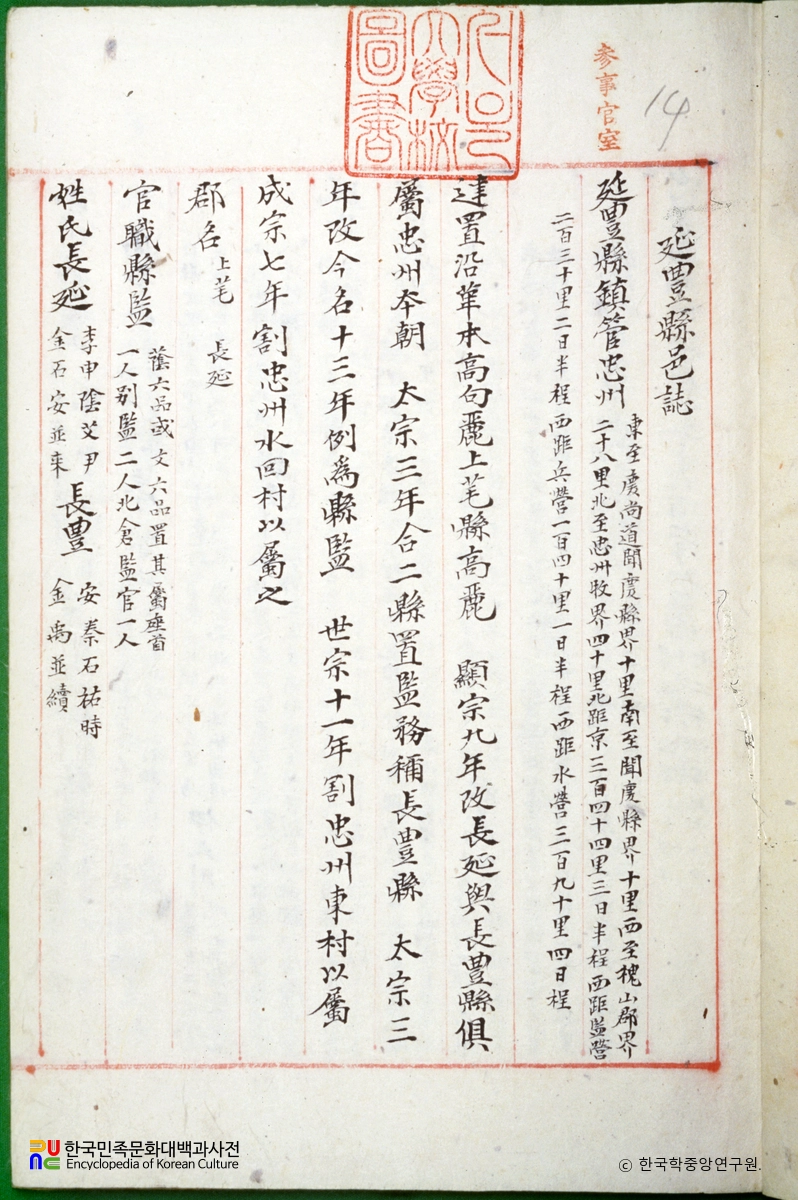 參事官室
14
延豊縣邑誌
延豊縣鎮管忠州
東至慶尚道聞慶縣界十里南至聞慶縣界十里西至槐山郡界
二十八里北至忠州牧界四十里北距京三百四十四里三日半程西距監營
二百三十里二日半程西距兵營一百四十里一日半程西距水營三百九十里四日程
建置沿革本高句麗上芼縣高麗 顯宗九年改長延與長豊縣俱
屬忠州本朝 太宗三年合二縣置監務稱長豊縣 太宗三
年改今名十三年例爲縣監 世宗十一年割忠州東村以屬
成宗七年割忠州水回村以屬之
郡名 上芼 長延
官職縣監
蔭六品或文六品置其屬座首
一人別監二人北倉監官一人
姓氏長延
李申陰艾尹
金石安並來
長豊
安秦石祐時
金禹並續
한국민족문화대백과사전
Encyclopedia of Korean Culture
© 한국학중앙연구원.